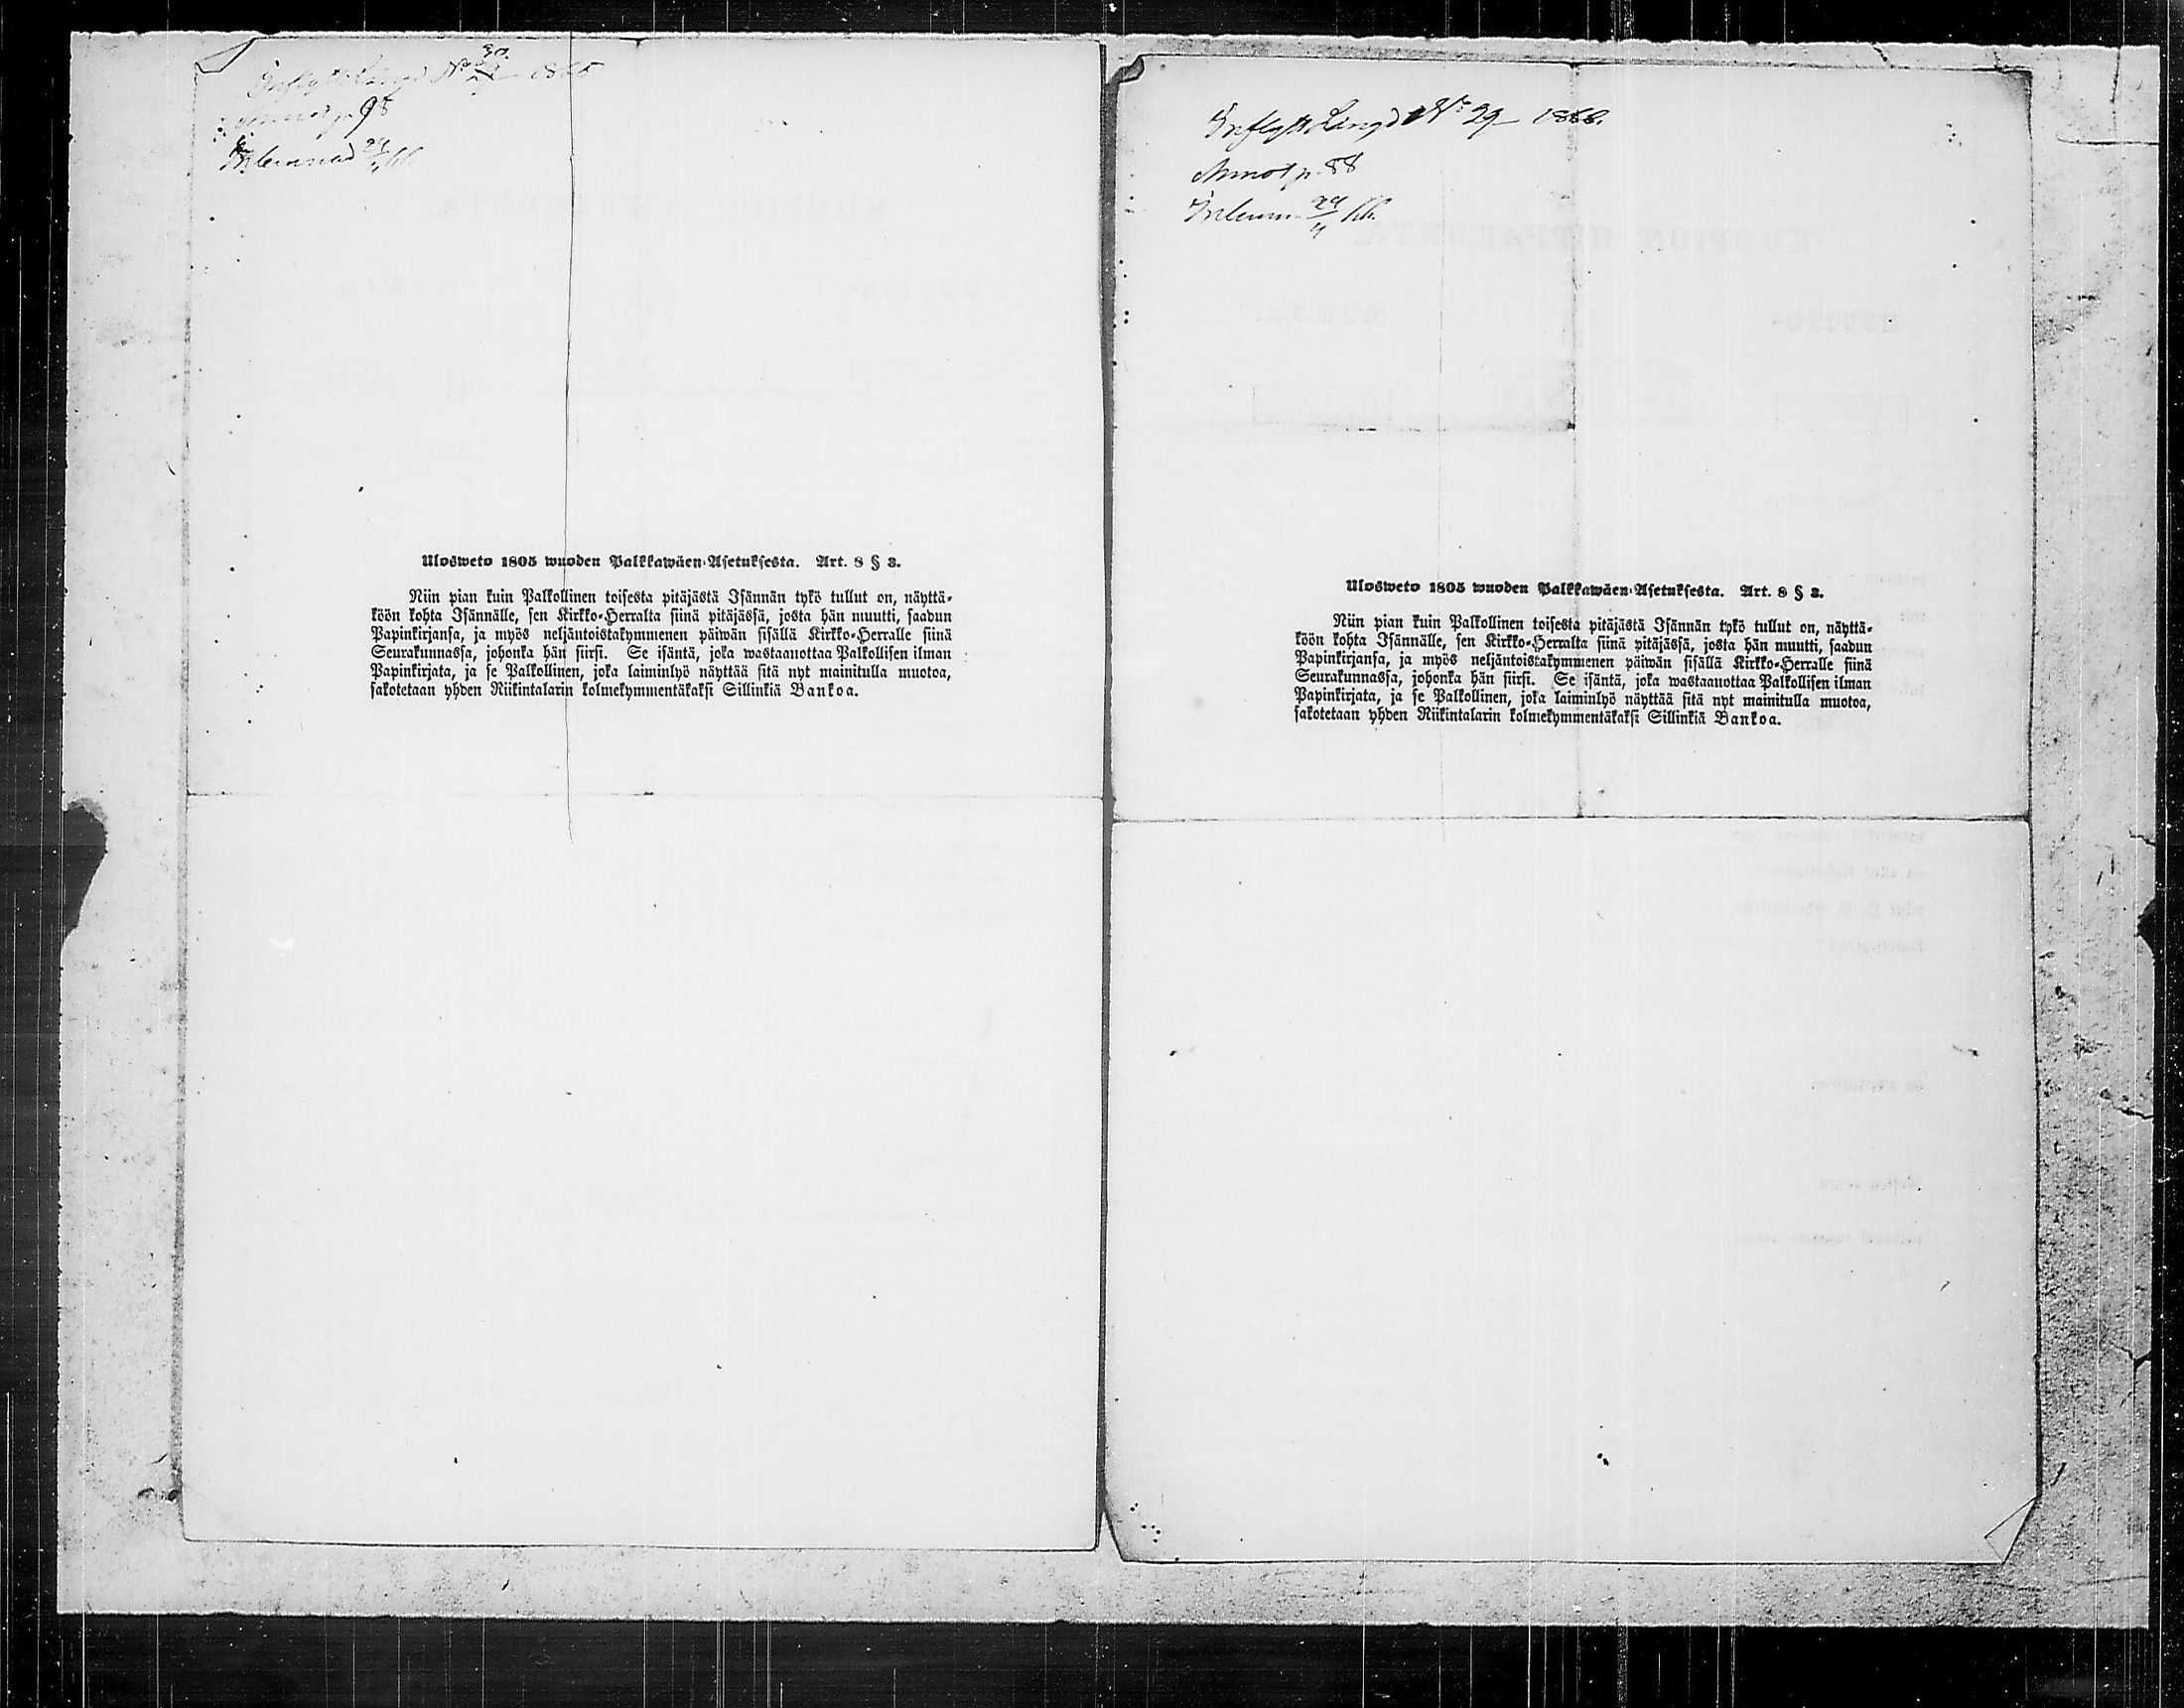 Inflytt Längd No 30 1866
Annot p. 98
Inlemnad 24/11 66
Ulosweto 1805 wuoden Palkkawäen-Asetuksesta. Art. 8 § 3.
Niin pian kuin Palkollinen toisesta pitäjästä Isännän tykö tullut on, näyttä-
köön kohta Isännälle, sen Kirkko-Herralta siinä pitäjässä, josta hän muutti, saadun
Papinkirjansa, ja myös neljäntoistakymmenen päiwän sisällä Kirkko-Herralle siinä
Seurakunnassa, johonka hän siirsi. Se isäntä, joka wastaanottaa Palkollisen ilman
Papinkirjata, ja se Palkollinen, joka laiminlyö näyttää sitä nyt mainitulla muotoa,
sakotetaan yhden Riikintalarin kolmekymmentäkaksi Sillinkiä Bankoa.
Inflytt Längd No 29 1866.
Annot p. 88
Inlemn. 24/11 66.
Ulosweto 1805 wuoden Palkkawäen-Asetuksesta. Art. 8 § 3.
Niin pian kuin Palkollinen toisesta pitäjästä Isännän tykö tullut on, näyttä-
köön kohta Isännälle, sen Kirkko-Herralta siinä pitäjässä, josta hän muutti, saadun
Papinkirjansa, ja myös neljäntoistakymmenen päiwän sisällä Kirkko-Herralle siinä
Seurakunnassa, johonka hän siirsi. Se isäntä, joka wastaanottaa Palkollisen ilman
Papinkirjata, ja se Palkollinen, joka laiminlyö näyttää sitä nyt mainitulla muotoa,
sakotetaan yhden Riikintalarin kolmekymmentäkaksi Sillinkiä Bankoa.